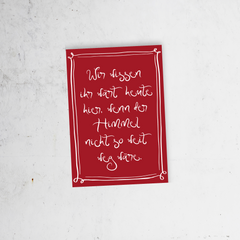 Wir wissen
ihr wärt heute
hier, wenn der
Himmel
nicht so weit
weg wäre.